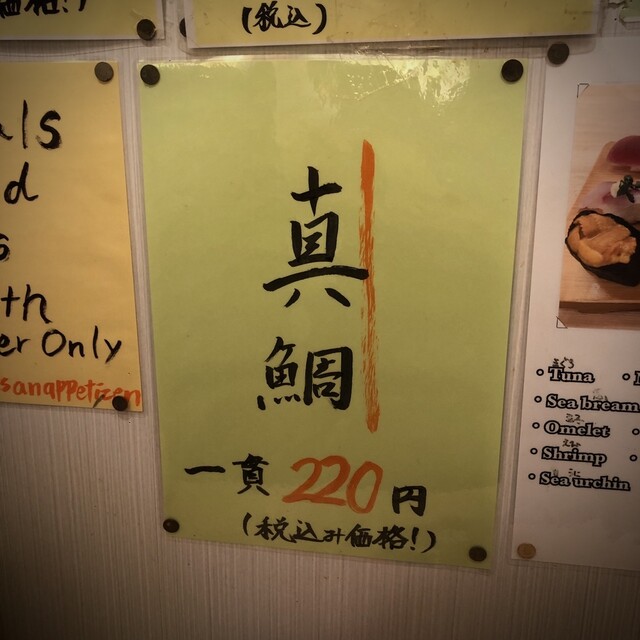 (税込)
als
d
s
th
er Only
sanappetizen
真鯛
一貫 220円
(税込み価格!)
・Tuna
・Sea bream
・Omelet
・Shrimp
・Sea urchin